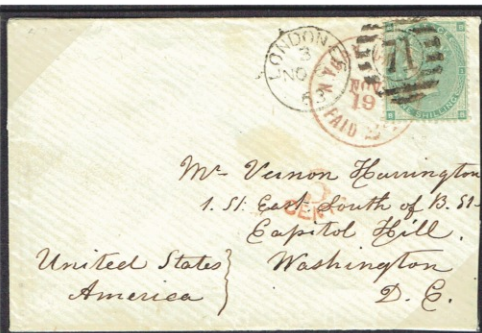 LONDON
3
NO
63
71
NOV
19
PAID
SHILLING
3
CENTS
Mr Vernon Harrington
1. St. East South of B. St
Capitol Hill.
Washington
D. C.
United States
America